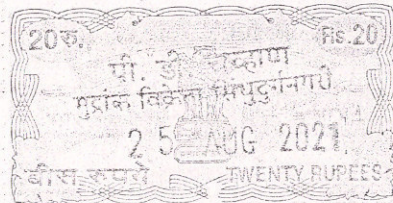 20रु. Rs.20
पी. डी. चव्हाण
मुद्रांक विक्रेता सिंधुदुर्गनगरी
25 AUG 2021
बीस रुपये TWENTY RUPEES